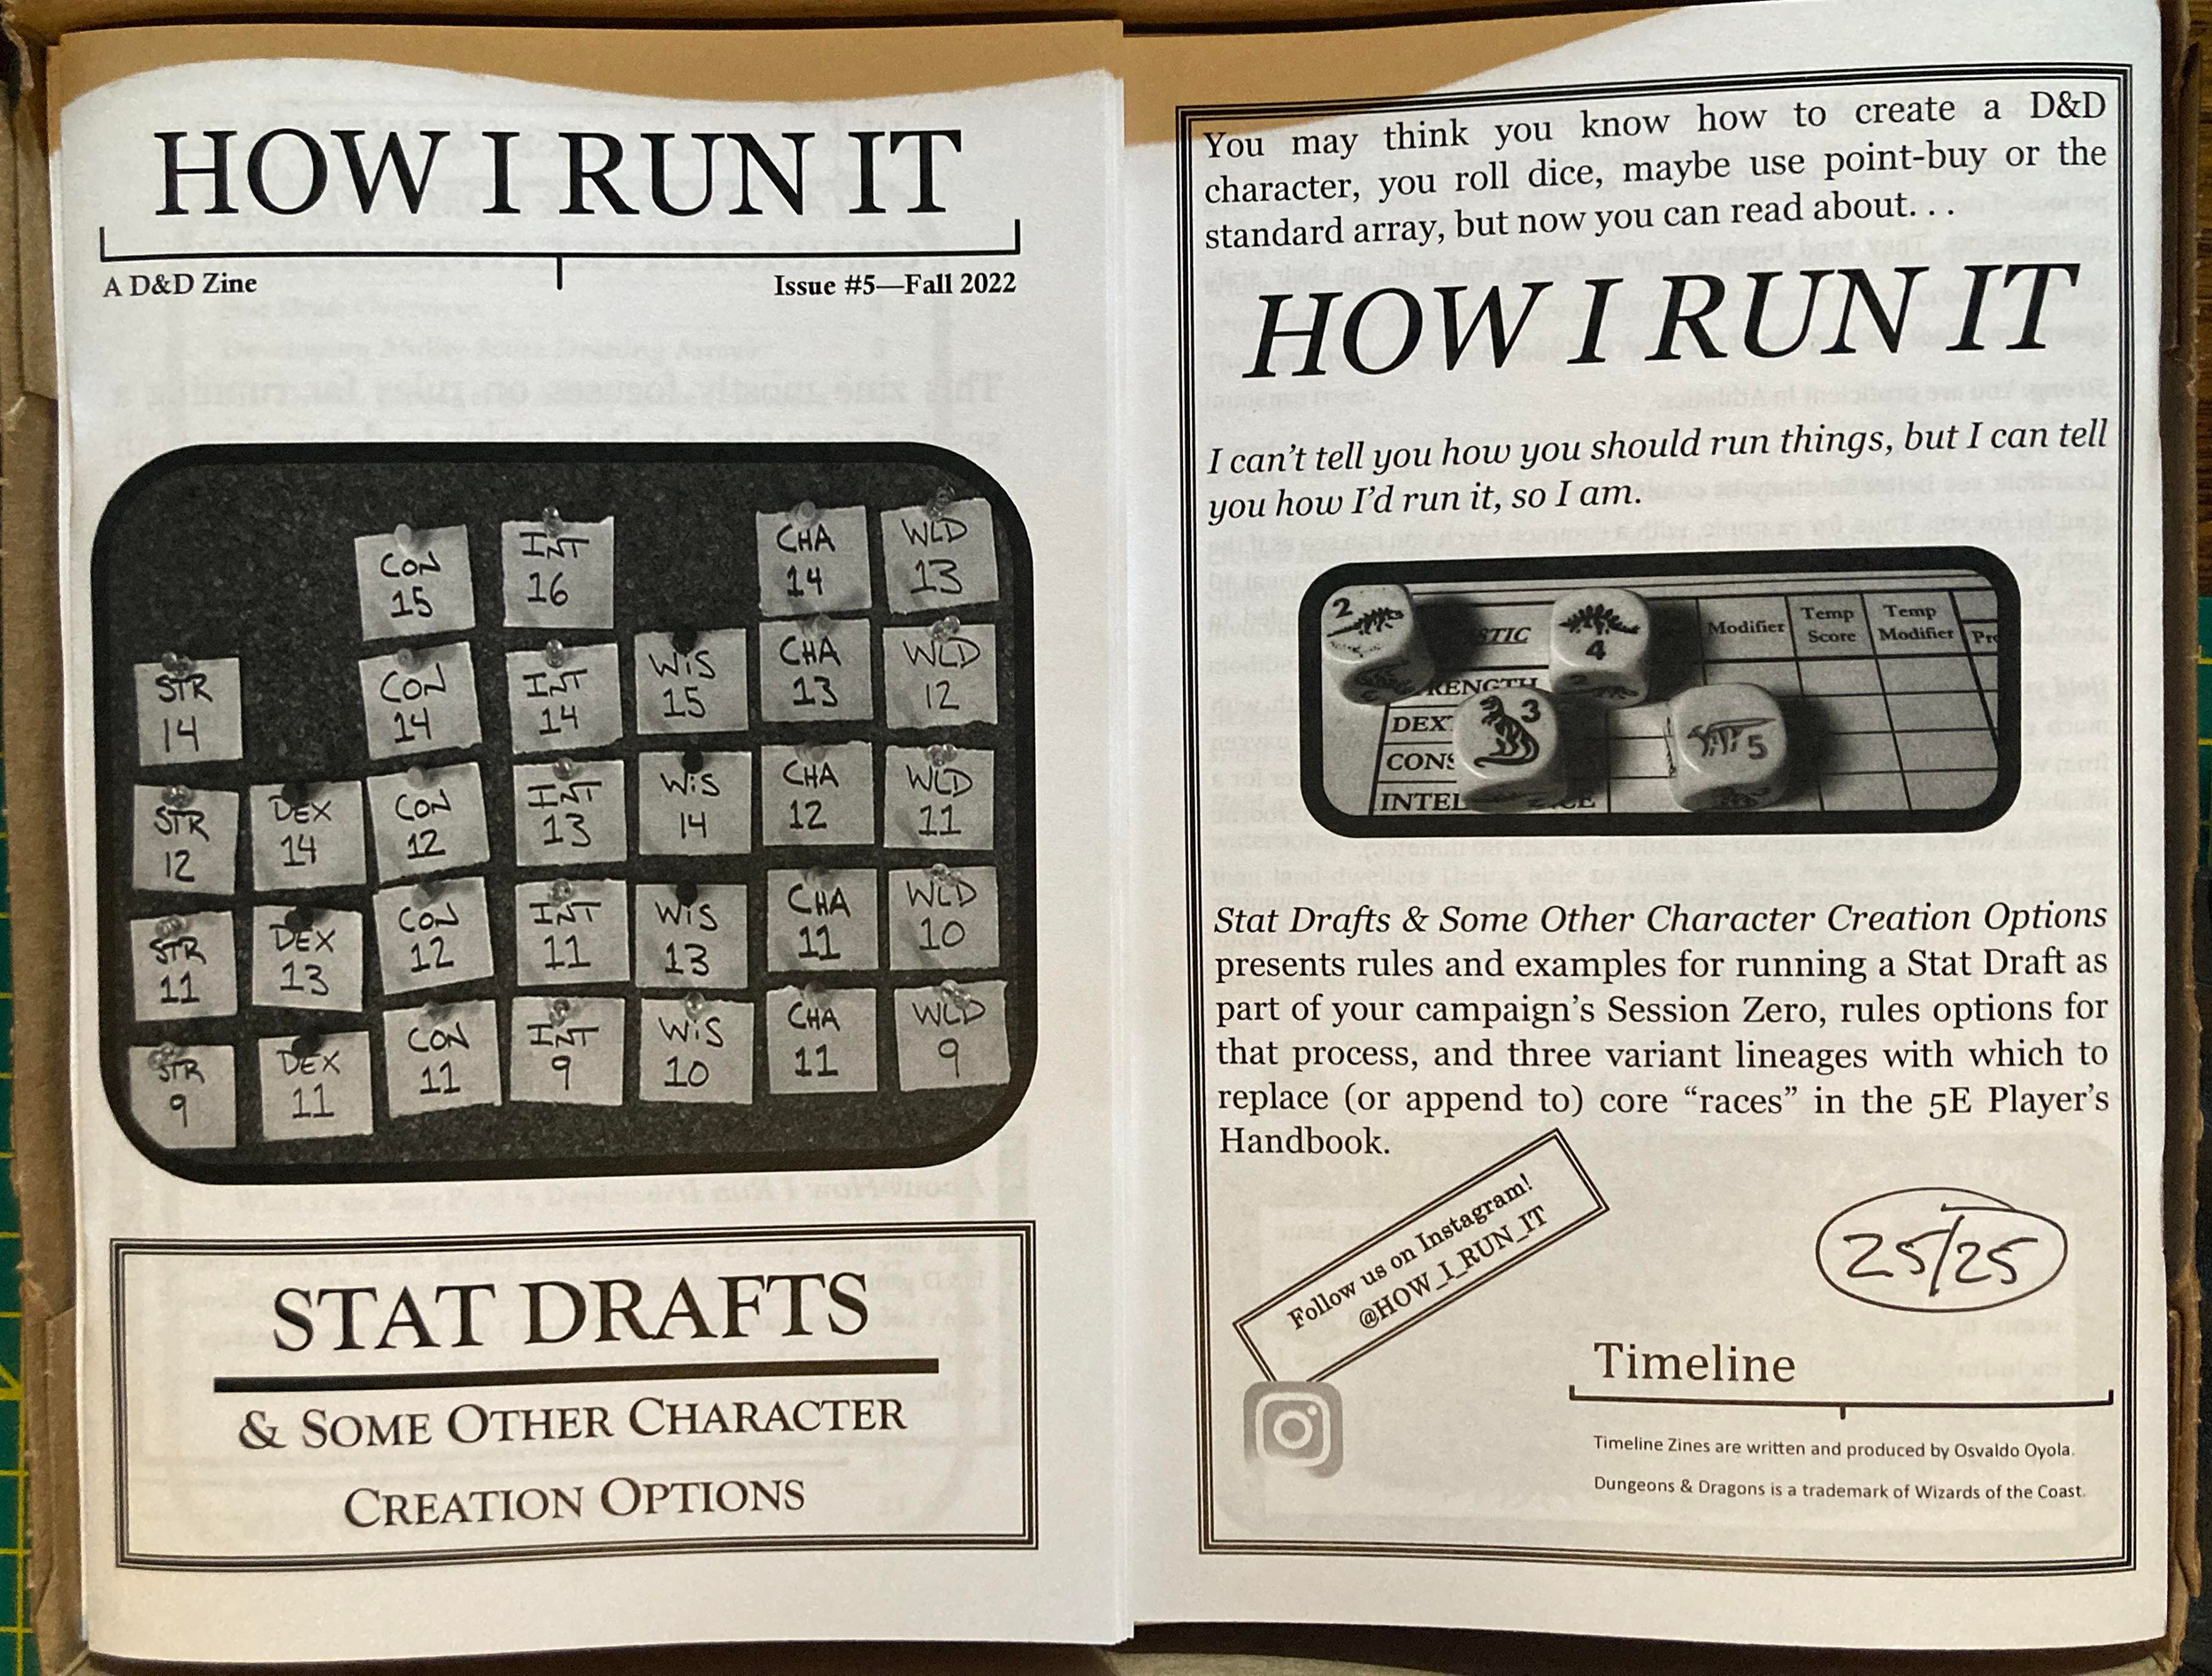 HOW I RUN IT
A D&D Zine
Issue #5—Fall 2022
CON 15
INT 16
CHA 14
WLD 13
STR 14
CON 14
INT 14
WiS 15
CHA 13
WLD 12
STR 12
DEX 14
CON 12
INT 13
WiS 14
CHA 12
WLD 11
STR 11
DEX 13
CON 12
INT 11
WiS 13
CHA 11
WLD 10
STR 9
DEX 11
CON 11
INT 9
WiS 10
CHA 11
WLD 9
STAT DRAFTS
& SOME OTHER CHARACTER
CREATION OPTIONS
You may think you know how to create a D&D
character, you roll dice, maybe use point-buy or the
standard array, but now you can read about. . .
HOW I RUN IT
I can't tell you how you should run things, but I can tell
you how I'd run it, so I am.
2
4
3
5
Modifier
Temp Score
Temp Modifier
DEX
CONS
INTEL
Stat Drafts & Some Other Character Creation Options
presents rules and examples for running a Stat Draft as
part of your campaign's Session Zero, rules options for
that process, and three variant lineages with which to
replace (or append to) core “races” in the 5E Player's
Handbook.
Follow us on Instagram!
@HOW_I_RUN_IT
25/25
Timeline
Timeline Zines are written and produced by Osvaldo Oyola.
Dungeons & Dragons is a trademark of Wizards of the Coast.